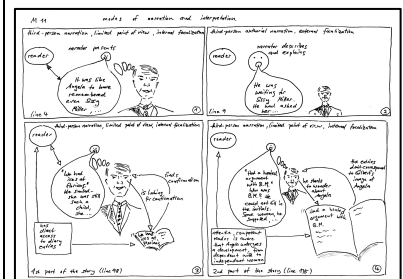 M 11 modes of narration and interpretation
third-person narration, limited point of view, internal focalization
reader
narrator presents
It was like
Angela to have
remembered
even Sissy
Miller ...
line 4
1
third-person authorial narration, external focalization
reader
narrator describes
and explains
He was
waiting for
Sissy Miller.
He had asked
her ...
line 9
2
third-person narration, limited point of view, internal focalization
reader
"We had
ices at
He
she was still
such a
child,
she ...
finds
confirmation
is looking
for confirmation
has
direct
access
to diary
entries
1st part of the story (line 98)
3
third-person narration, limited point of view, internal focalization
reader
"Had a heated
argument
with B.M."
Who was
B.M.? He
could not fill in
the initials.
Some woman, he
supposed, ...
he starts
to wonder
about
Angela
the entries
don't correspond
to Gilbert's
image of
Angela
Had a heated
argument with
B.M.
attentive, competent
reader is aware
that Angela undergoes
a development, from
dependent wife to
independent woman
2nd part of the story
4